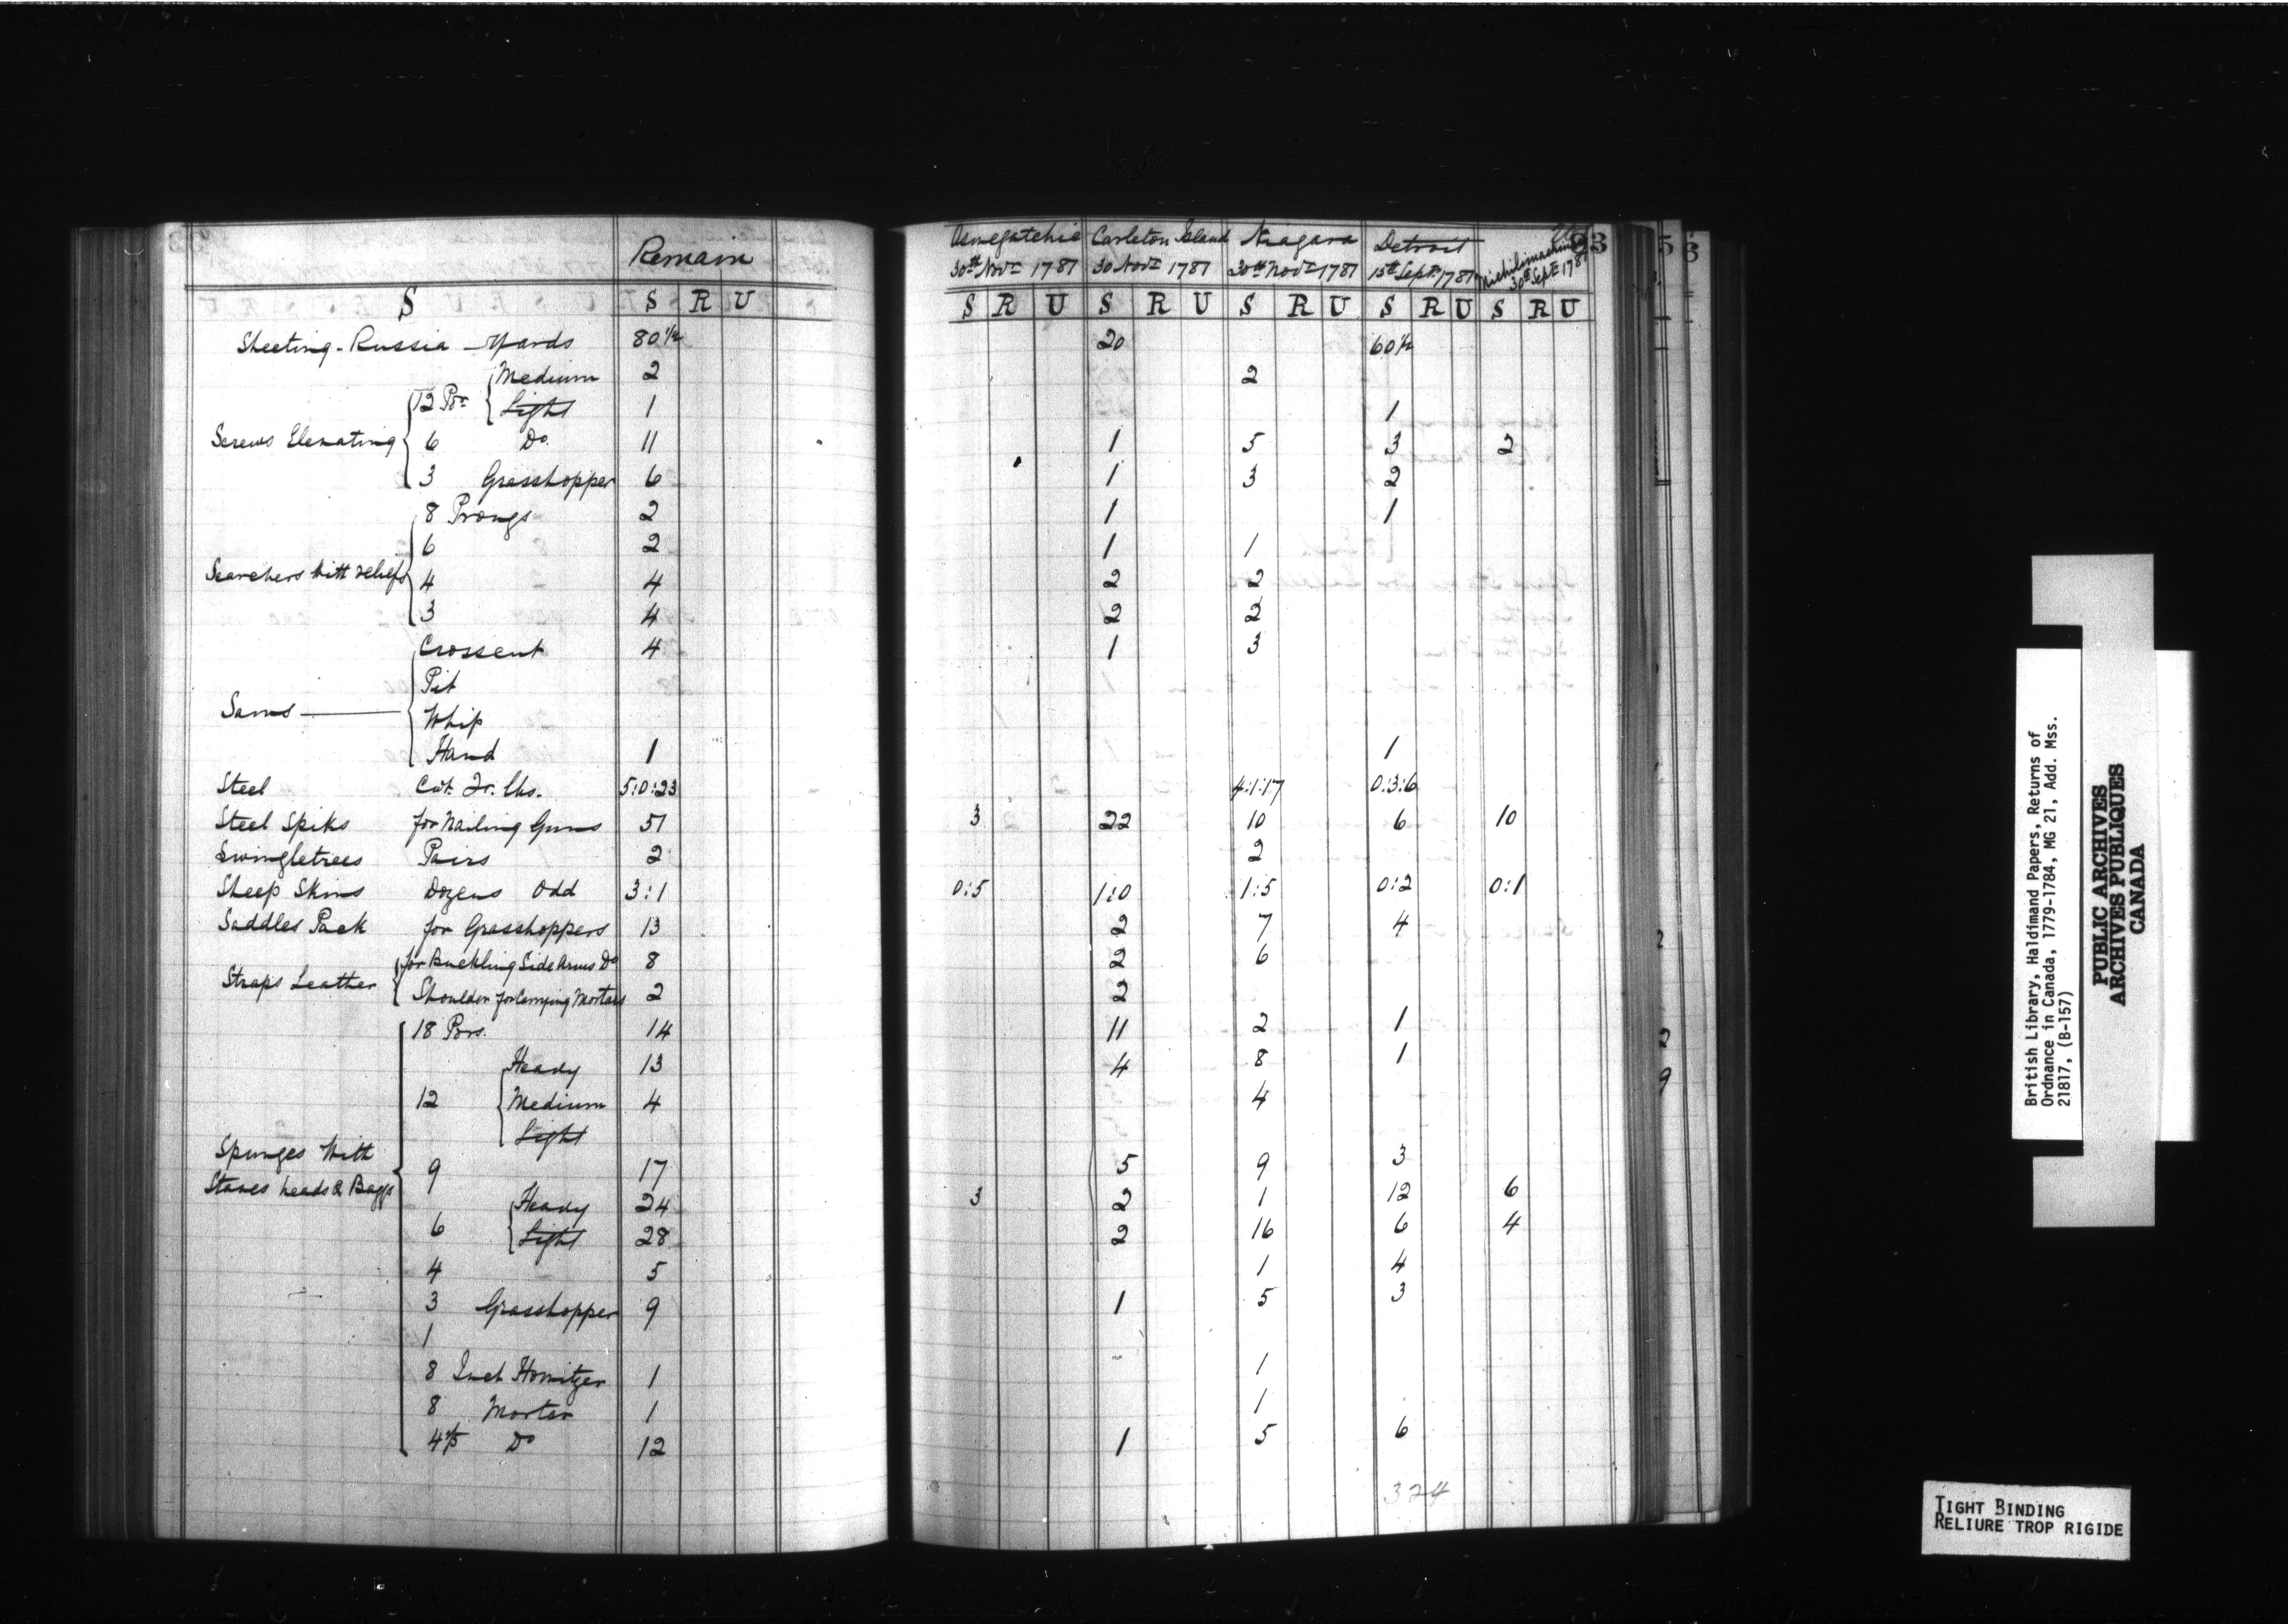 Remain
S S R U
Sheeting - Russia - Yards 80 1/2
Screws Elevating 12 Por Medium 2
Light 1
6 Do. 11
3 Grasshopper 6
Searchers With reliefs 8 Prongs 2
6 2
4 4
3 4
Saws Crosscut 4
Pit
Whip
Hand 1
Steel Cwt. Qr. lbs. 5:0:23
Steel Spiks for Nailing Guns 51
Swingletrees Pairs 2
Sheep Skins Dozens Odd 3:1
Saddles Pack for Grasshoppers 13
Straps Leather for Buckling Side Arms Do 8
Shoulder for Carrying Mortars 2
Spunges With Staves heads & Baggs 18 Pors. 14
12 Heavy 13
Medium 4
Light
9 17
6 Heavy 24
Light 28
4 5
3 Grasshopper 9
1
8 Inch Howitzer 1
8 Mortar 1
4 2/5 Do 12
Oswegatchie Carleton Island Niagara Detroit Michilimackinac 93
30th Novr 1781 30 Novr 1781 20th Novr 1781 15th Septr 1781 30th Septr 1781
S R U S R U S R U S R U S R U
20 60 1/2
2
1
1 5 3 2
1 3 2
1 1
1 1
2 2
2 2
1 3
1
4:1:17 0:3:6
3 22 10 6 10
2
0:5 1:0 1:5 0:2 0:1
2 7 4
2 6
2
11 2 1
4 8 1
4
5 9 3
3 2 1 12 6
2 16 6 4
1 4
1 5 3
1
1
1 5 6
324
British Library, Haldimand Papers, Returns of
Ordnance in Canada, 1779-1784, MG 21, Add. Mss.
21817, (B-157)
PUBLIC ARCHIVES
ARCHIVES PUBLIQUES
CANADA
TIGHT BINDING
RELIURE TROP RIGIDE